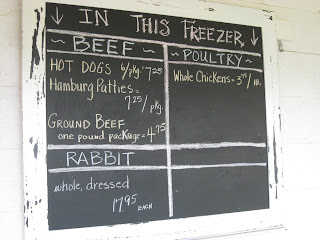 ↓ IN THIS FREEZER ↓
~ BEEF ~
HOT DOGS 6/pkg. 7.25
Hamburg Patties =
7.25/pkg.
GROUND BEEF
one pound package = 4.75
~ POULTRY ~
Whole Chickens = 3.75/lb.
RABBIT
whole, dressed
17.95 EACH